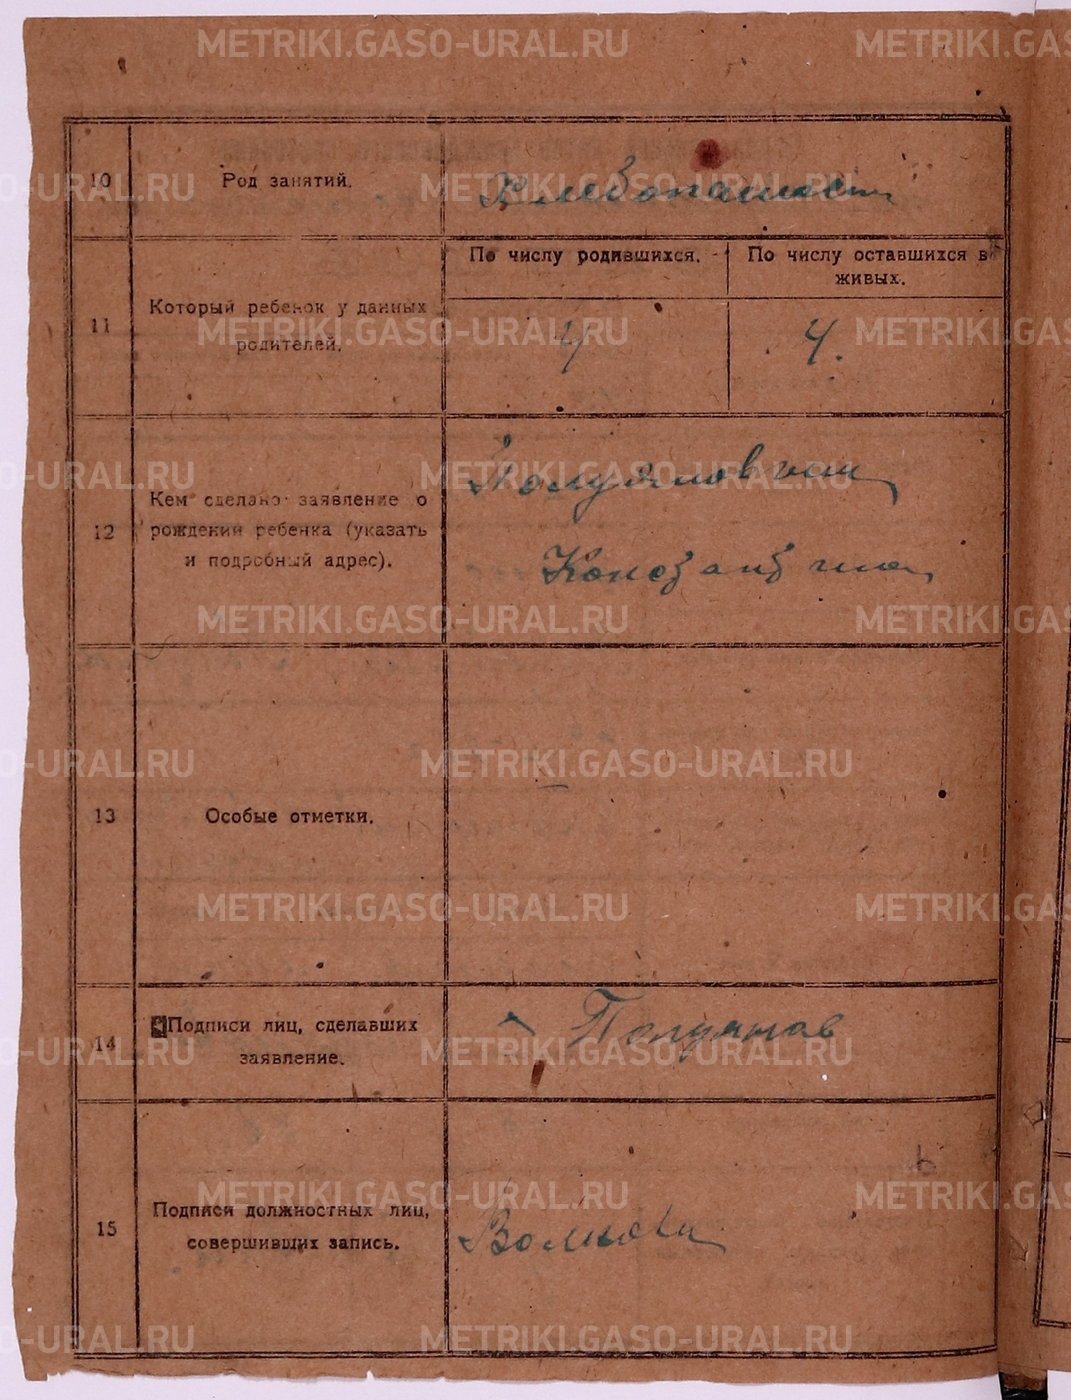 METRIKI.GASO-URAL.RU
10 Род занятий. Хлебопашест
11 Который ребенок у данных родителей.
По числу родившихся. По числу оставшихся в живых.
4 4.
12 Кем сделано заявление о рождении ребенка (указать и подробный адрес).
Полуяновым
Констант
13 Особые отметки.
—
14 Подписи лиц, сделавших заявление.
Полуянов
15 Подписи должностных лиц, совершивших запись.